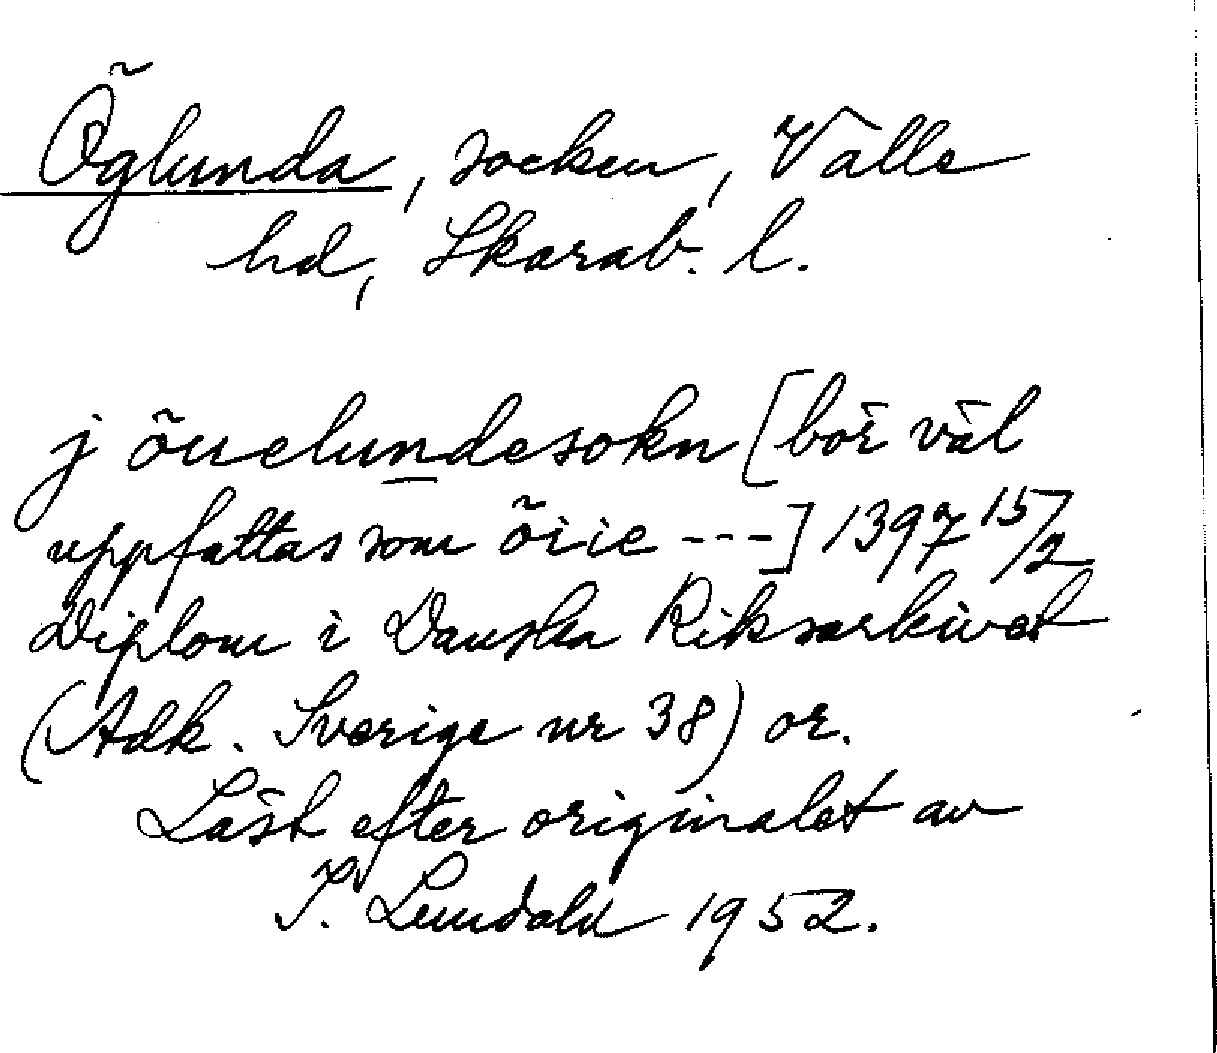 Öglunda, socken, Valle
hd, Skarab. l.
j öuelundesokn [bör väl
uppfattas som öiie ---] 1397 15/2
Diplom i Danska Riksarkivet
(Adk. Sverige nr 38) or.
Läst efter originalet av
1952.